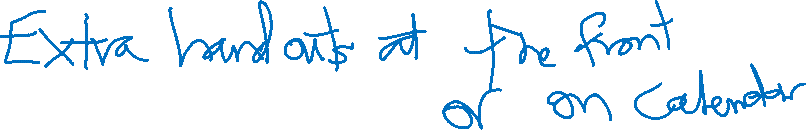 Extra handouts at the front
or on Calendar